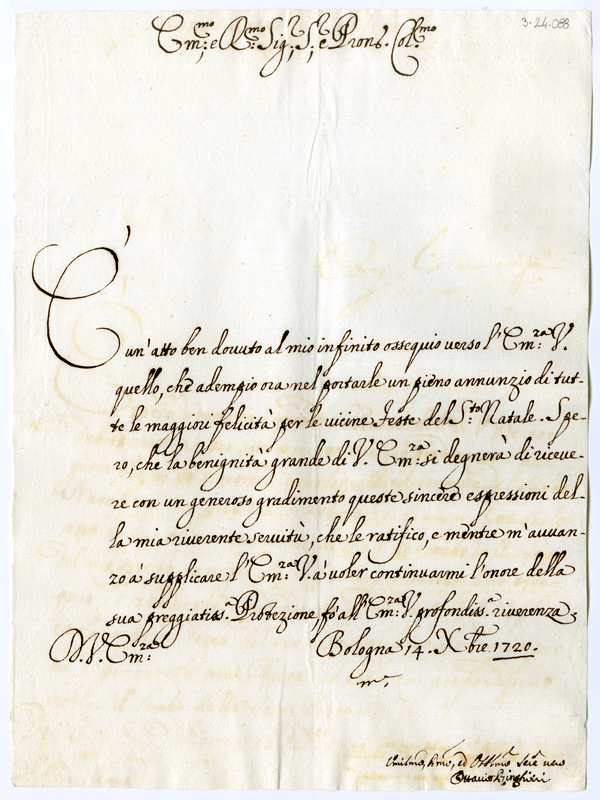 3-24-088
Em:mo e R:mo Sig.r, S.r e Pron. Col.mo
È un' atto ben dovuto al mio infinito ossequio verso l' Em:ra V.
quello, che adempio ora nel portarle un pieno annunzio di tut-
te le maggiori felicità per le vicine Feste del S.to Natale. Spe-
ro, che la benignità grande di V. Em:ra si degnerà di riceve-
re con un generoso gradimento queste sincere espressioni del-
la mia riverente servitù, che le ratifico, e mentre m' avvan-
zo à supplicare l' Em:ra V. à voler continuarmi l'onore della
sua preggiatiss.a Protezione, fò all' Em:ra V. profondiss.a riverenza,
D. V. Em:ra Bologna 14. Xbre 1720.
Ottavio